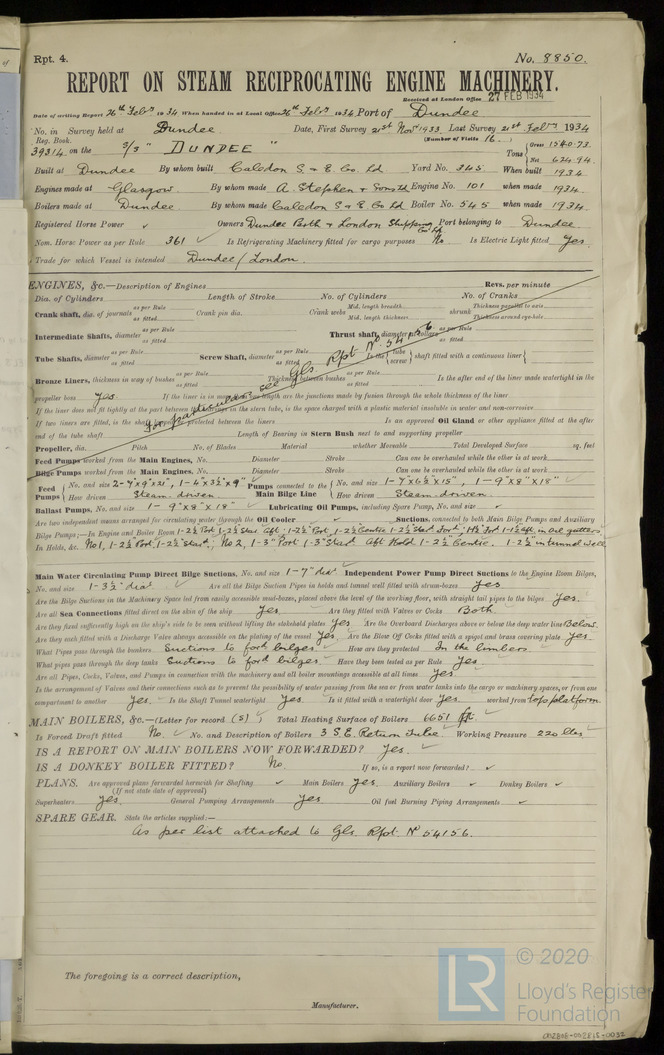 Rpt. 4.
No. 8850.
REPORT ON STEAM RECIPROCATING ENGINE MACHINERY.
Received at London Office 27 FEB 1934
Date of writing Report 26th Feby 1934 When handed in at Local Office 26th Feby 1934 Port of Dundee
No. in Survey held at Dundee. Date, First Survey 21st Novr 1933 Last Survey 21st Feby 1934
Reg. Book. (Number of Visits 16
39314 on the S/S "DUNDEE" Tons Gross 1540.73. Net 624.94.
Built at Dundee By whom built Caledon S. & E. Co. Ld Yard No. 345 When built 1934.
Engines made at Glasgow. By whom made A. Stephen & Sons Ld Engine No. 101 when made 1934.
Boilers made at Dundee By whom made Caledon S & E Co Ld Boiler No. 545 when made 1934.
Registered Horse Power Owners Dundee Perth & London Shipping Co Ld Port belonging to Dundee
Nom. Horse Power as per Rule 361 Is Refrigerating Machinery fitted for cargo purposes No Is Electric Light fitted Yes.
Trade for which Vessel is intended Dundee / London.
ENGINES, &c.—Description of Engines Revs. per minute
Dia. of Cylinders Length of Stroke No. of Cylinders No. of Cranks
Crank shaft, dia. of journals as per Rule as fitted Crank pin dia. Crank webs Mid. length breadth Mid. length thickness shrunk Thickness parallel to axis Thickness around eye-hole
Intermediate Shafts, diameter as per Rule as fitted Thrust shaft, diameter at collars as per Rule as fitted
Tube Shafts, diameter as per Rule as fitted Screw Shaft, diameter as per Rule as fitted Is the tube screw shaft fitted with a continuous liner
For particulars see Gls Rpt No 54156
Bronze Liners, thickness in way of bushes as per Rule as fitted Thickness between bushes as per Rule as fitted Is the after end of the liner made watertight in the
propeller boss Yes If the liner is in more than one length are the junctions made by fusion through the whole thickness of the liner
If the liner does not fit tightly at the part between the bearings in the stern tube, is the space charged with a plastic material insoluble in water and non-corrosive
If two liners are fitted, is the shaft protected between the liners Is an approved Oil Gland or other appliance fitted at the after
end of the tube shaft Length of Bearing in Stern Bush next to and supporting propeller
Propeller, dia. Pitch No. of Blades Material whether Moveable Total Developed Surface sq. feet
Feed Pumps worked from the Main Engines, No. Diameter Stroke Can one be overhauled while the other is at work
Bilge Pumps worked from the Main Engines, No. Diameter Stroke Can one be overhauled while the other is at work
Feed Pumps No. and size 2-7"x9"x21", 1-6"x3½"x9" Pumps connected to the Main Bilge Line No. and size 1-7"x6½"x15", 1-9"x8"x18"
How driven Steam driven How driven Steam driven.
Ballast Pumps, No. and size 1-9"x8"x18" Lubricating Oil Pumps, including Spare Pump, No. and size
Are two independent means arranged for circulating water through the Oil Cooler Suctions, connected to both Main Bilge Pumps and Auxiliary
Bilge Pumps;—In Engine and Boiler Room 1-2½" Port, 1-2½" Star Aft. 1-2½" Port, 1-2½" Centre, 1-2½" Star Ford
In Holds, &c. No 1, 1-2½" Port, 1-2½" Star; No 2, 1-3" Port 1-3" Star Aft Hold 1-2½" Centre. 1-2½" in tunnel well
Main Water Circulating Pump Direct Bilge Suctions, No. and size 1-7" dia Independent Power Pump Direct Suctions to the Engine Room Bilges,
No. and size 1-3½" dia. Are all the Bilge Suction Pipes in holds and tunnel well fitted with strum-boxes Yes
Are the Bilge Suctions in the Machinery Space led from easily accessible mud-boxes, placed above the level of the working floor, with straight tail pipes to the bilges Yes.
Are all Sea Connections fitted direct on the skin of the ship Yes. Are they fitted with Valves or Cocks Both.
Are they fixed sufficiently high on the ship's side to be seen without lifting the stokehold plates Yes Are the Overboard Discharges above or below the deep water line Below.
Are they each fitted with a Discharge Valve always accessible on the plating of the vessel Yes. Are the Blow Off Cocks fitted with a spigot and brass covering plate Yes.
What Pipes pass through the bunkers Suctions to ford bilges How are they protected In the limbers.
What pipes pass through the deep tanks Suctions to ford bilges. Have they been tested as per Rule Yes
Are all Pipes, Cocks, Valves, and Pumps in connection with the machinery and all boiler mountings accessible at all times Yes.
Is the arrangement of Valves and their connections such as to prevent the possibility of water passing from the sea or from water tanks into the cargo or machinery spaces, or from one
compartment to another Yes. Is the Shaft Tunnel watertight Yes. Is it fitted with a watertight door Yes. worked from top platform
MAIN BOILERS, &c.—(Letter for record (S) Total Heating Surface of Boilers 6651
Is Forced Draft fitted No. No. and Description of Boilers 3 S.E. Return Tube Working Pressure 220 lbs
IS A REPORT ON MAIN BOILERS NOW FORWARDED? Yes.
IS A DONKEY BOILER FITTED? No. If so, is a report now forwarded?
PLANS. Are approved plans forwarded herewith for Shafting Main Boilers Yes. Auxiliary Boilers Donkey Boilers
(If not state date of approval)
Superheaters Yes. General Pumping Arrangements Yes Oil fuel Burning Piping Arrangements
SPARE GEAR. State the articles supplied:—
As per list attached to Gls. Rpt. No 54156.
The foregoing is a correct description,
Manufacturer.
LR
© 2020
Lloyd's Register
Foundation
002808-002815-0032